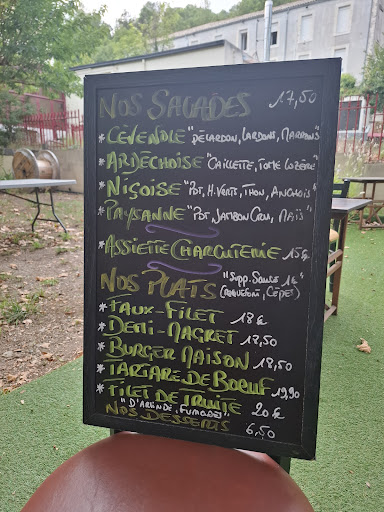 NOS SALADES 17,50
*CÉVENOLE "PÉLARDON, LARDONS, MARRONS"
*ARDÉCHOISE "CAILLETTE, TOME LOZÈRE"
*NIÇOISE "POT, H. VERTS, THON, ANCHOIS"
*PAYSANNE "POT, JAMBON CRU, MAÏS"
*ASSIETTE CHARCUTERIE 15€
NOS PLATS "SUPP. SAUCE 1€"
(ROQUEFORT, CÈPES)
*FAUX-FILET 18€
*DEMI-MAGRET 18,50
*BURGER MAISON 18,50
*TARTARE DE BOEUF 19,90
*FILET DE TRUITE 20€
"D'ARDÈCHE, FUMÉES"
NOS DESSERTS 6,50